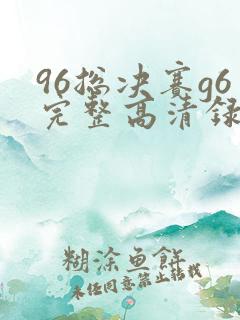 96总决赛g6
完整高清录
糊涂鱼饼
未经同意禁止转载